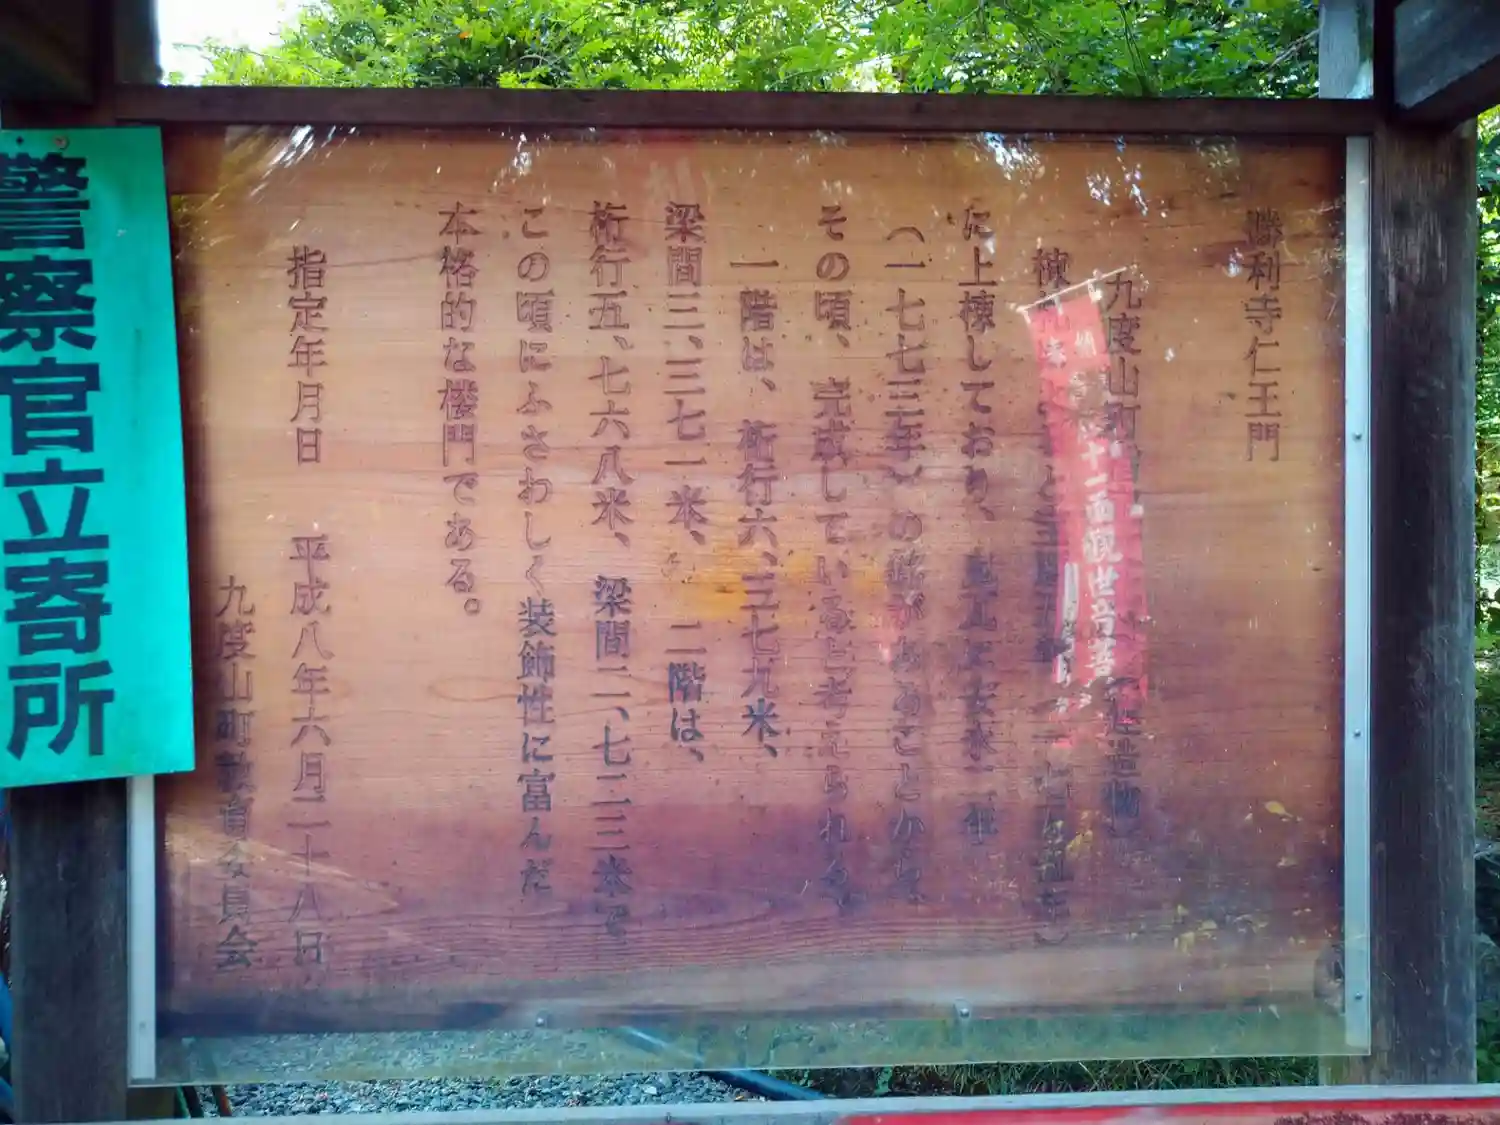 勝利寺仁王門
九度山町指定 (建造物)
棟札
に上棟しており、鬼瓦に安永二年
(一七七三年)の銘があることから、
その頃、完成していると考えられる。
一階は、桁行六、三七九米、
梁間三、三七一米、二階は、
桁行五、七六八米、梁間二、七二三米で
この頃にふさわしく装飾性に富んだ
本格的な楼門である。
指定年月日 平成八年六月二十八日
九度山町教育委員会
十一面観世音菩
警察官立寄所